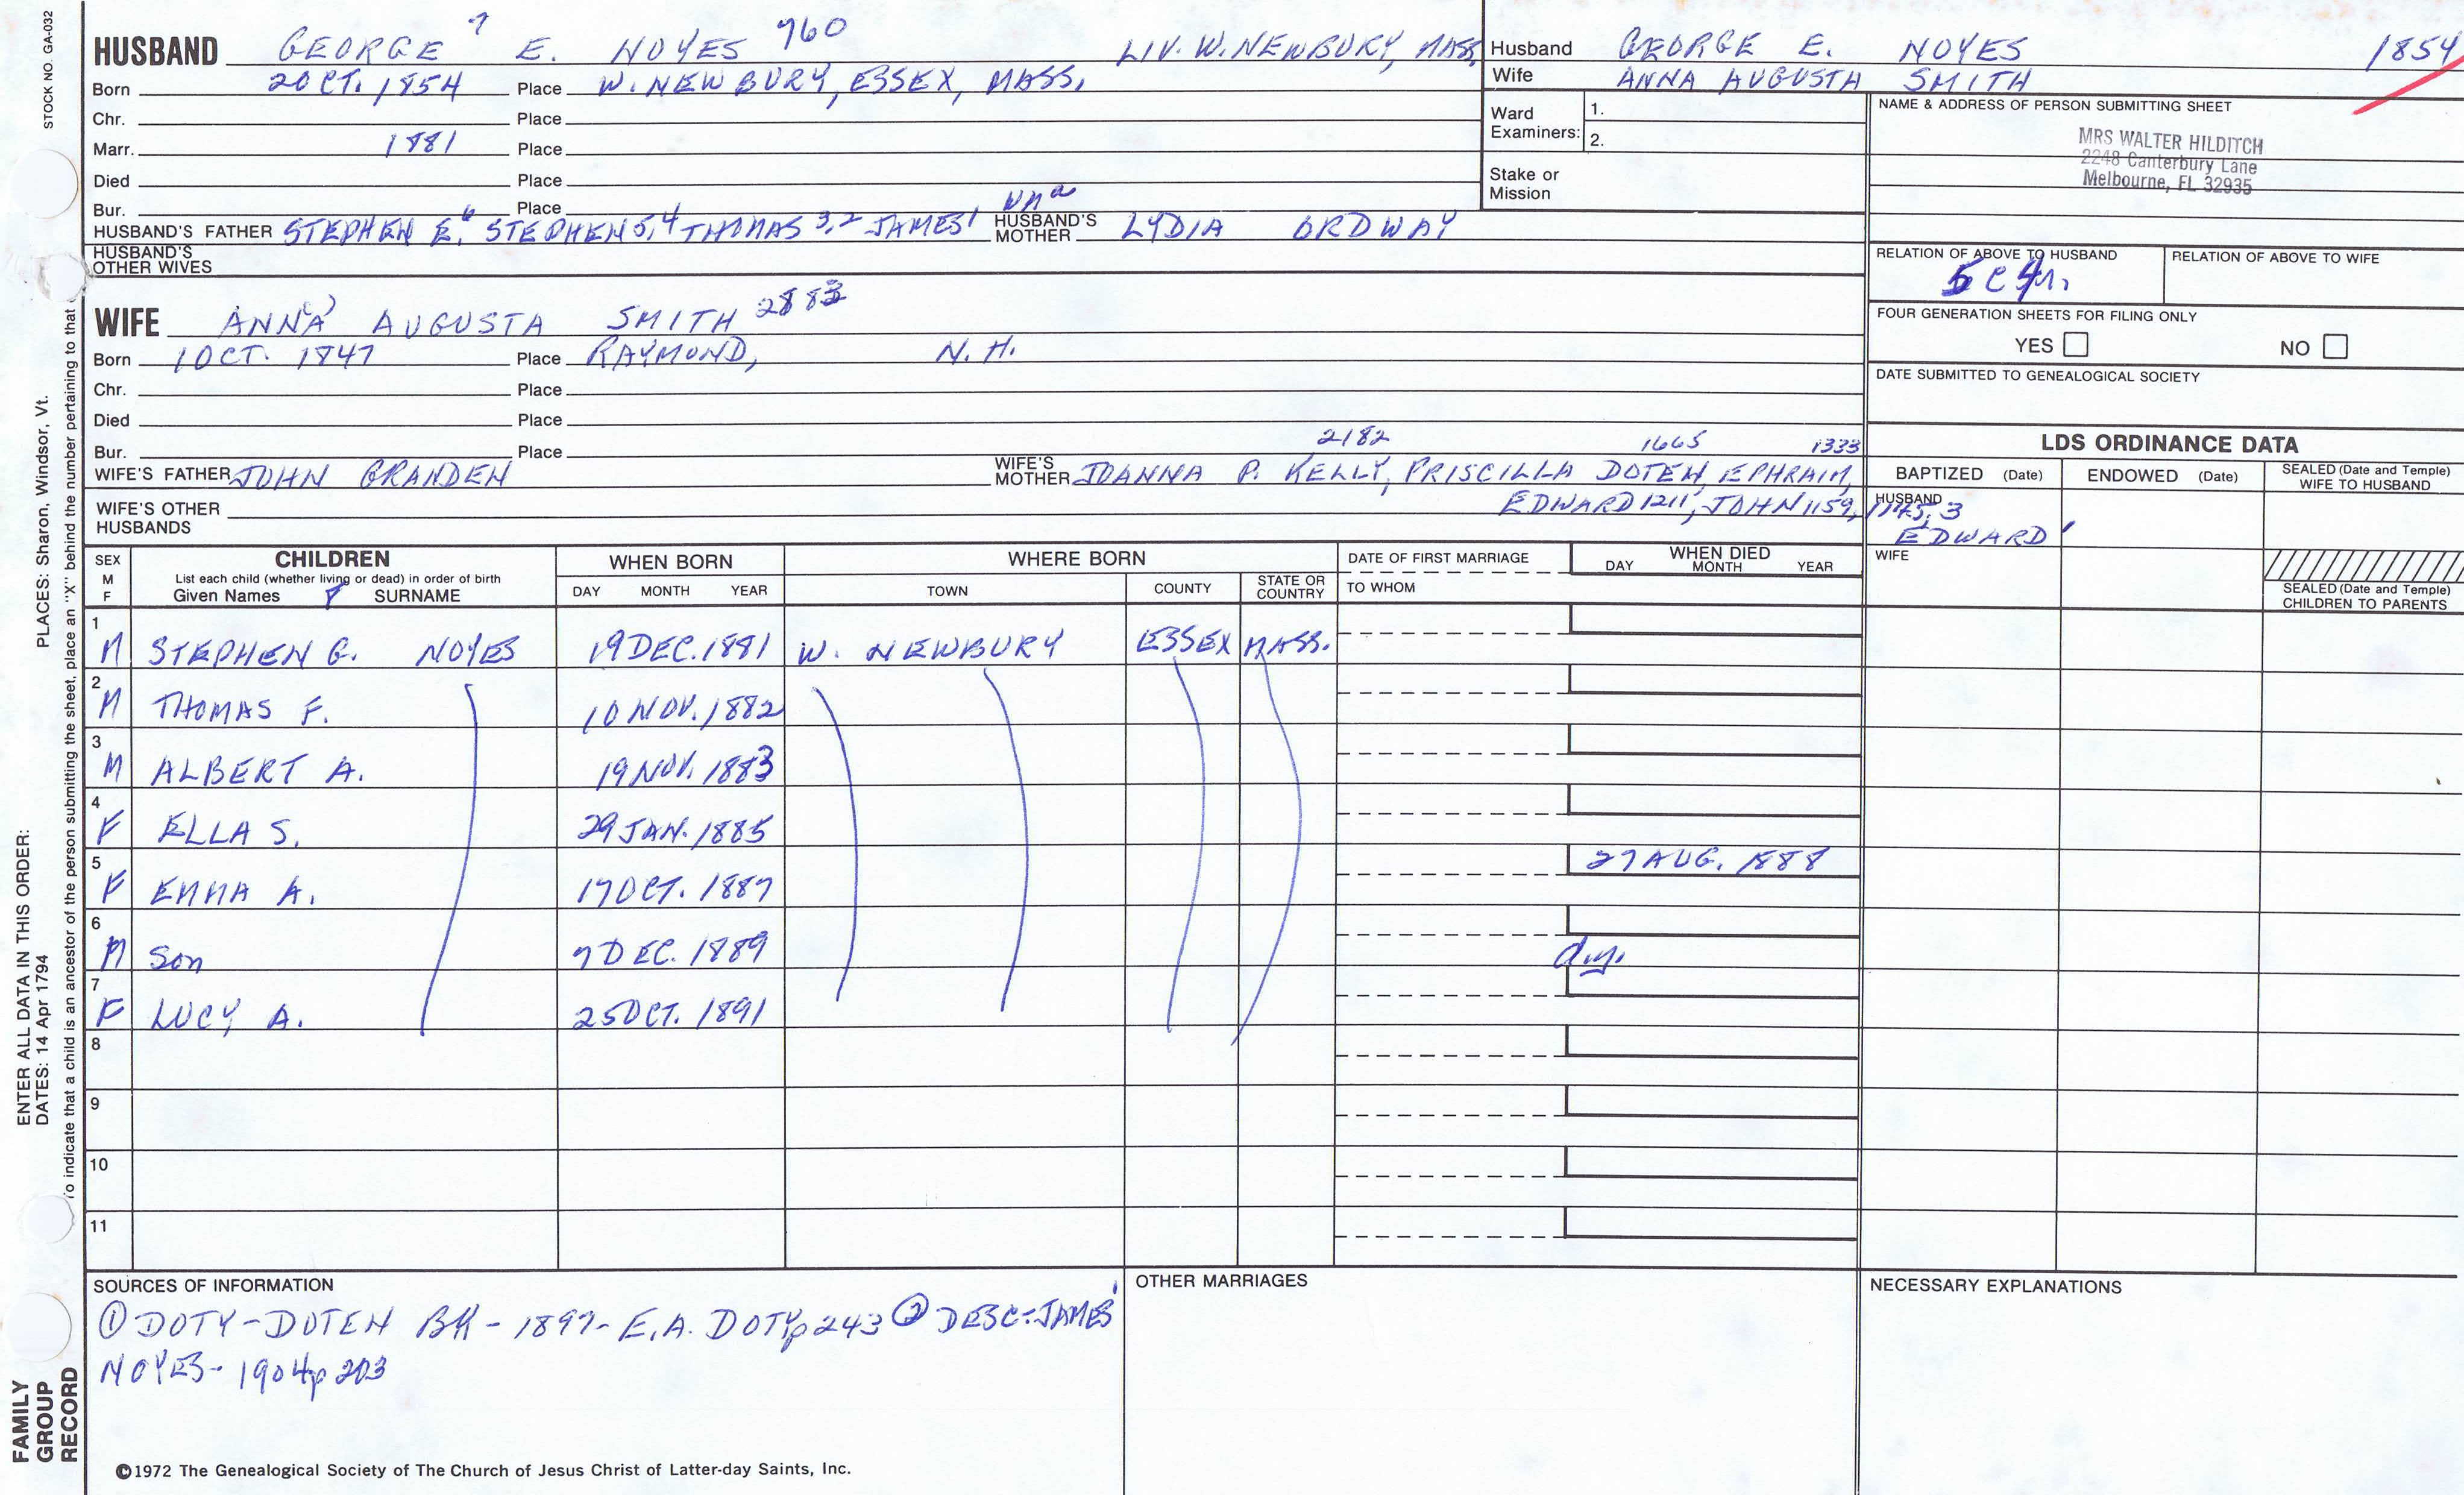 STOCK NO. GA-032
HUSBAND GEORGE 7 E. NOYES 960 LIV. W. NEWBURY, MASS.
Born 2 OCT. 1854 Place W. NEWBURY, ESSEX, MASS.
Chr. Place
Marr. 1881 Place
Died Place
Bur. Place
HUSBAND'S FATHER STEPHEN E.6 STEPHEN 5,4 THOMAS 3,2 JAMES 1 HUSBAND'S MOTHER LYDIA ORDWAY
HUSBAND'S OTHER WIVES
Husband GEORGE E. NOYES 1854
Wife ANNA AUGUSTA SMITH
Ward Examiners: 1.
2.
Stake or Mission
NAME & ADDRESS OF PERSON SUBMITTING SHEET
MRS WALTER HILDITCH
2248 Canterbury Lane
Melbourne, FL 32935
RELATION OF ABOVE TO HUSBAND RELATION OF ABOVE TO WIFE
FOUR GENERATION SHEETS FOR FILING ONLY
YES NO
DATE SUBMITTED TO GENEALOGICAL SOCIETY
WIFE ANNA AUGUSTA SMITH 2883
Born 1 OCT. 1847 Place RAYMOND, N.H.
Chr. Place
Died Place
Bur. Place
2182 1665 1333
WIFE'S FATHER JOHN GRANDEN WIFE'S MOTHER JOANNA P. KELLY, PRISCILLA DOTEN, EPHRAIM,
WIFE'S OTHER HUSBANDS EDWARD 1211, JOHN 1159,
EDWARD 1
LDS ORDINANCE DATA
BAPTIZED (Date) ENDOWED (Date) SEALED (Date and Temple) WIFE TO HUSBAND
HUSBAND
WIFE
SEALED (Date and Temple) CHILDREN TO PARENTS
SEX M F CHILDREN List each child (whether living or dead) in order of birth Given Names 8 SURNAME
WHEN BORN DAY MONTH YEAR
WHERE BORN TOWN COUNTY STATE OR COUNTRY
DATE OF FIRST MARRIAGE TO WHOM
WHEN DIED DAY MONTH YEAR
1 M STEPHEN G. NOYES 19 DEC. 1881 W. NEWBURY ESSEX MASS.
2 M THOMAS F. 10 NOV. 1882
3 M ALBERT A. 19 NOV. 1883
4 F ELLA S. 29 JAN. 1885
5 F EMMA A. 17 OCT. 1887 27 AUG. 1888
6 M Son 7 DEC. 1889 d.y.
7 F LUCY A. 25 OCT. 1891
8
9
10
11
SOURCES OF INFORMATION
① DOTY-DOTEN BK - 1897 - E.A. DOTY p 243 ② DESC: JAMES 1
NOYES - 1904 p 203
OTHER MARRIAGES
NECESSARY EXPLANATIONS
©1972 The Genealogical Society of The Church of Jesus Christ of Latter-day Saints, Inc.
ENTER ALL DATA IN THIS ORDER:
DATES: 14 Apr 1794 PLACES: Sharon, Windsor, Vt.
To indicate that a child is an ancestor of the person submitting the sheet, place an "X" behind the number pertaining to that
FAMILY GROUP RECORD